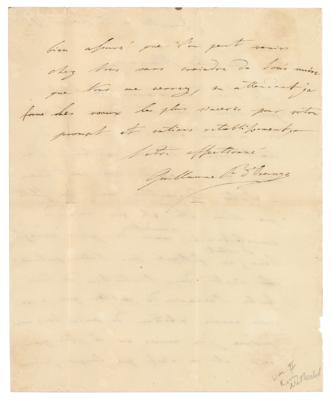 bien assuré que l'on peut venir
chez Vous sans craindre de Vous nuire
que Vous me verrez, en attendant je
fais des voeux les plus sincères pour votre
prompt et entier rétablissement
Votre affectionné
Guillaume P. d'Orange